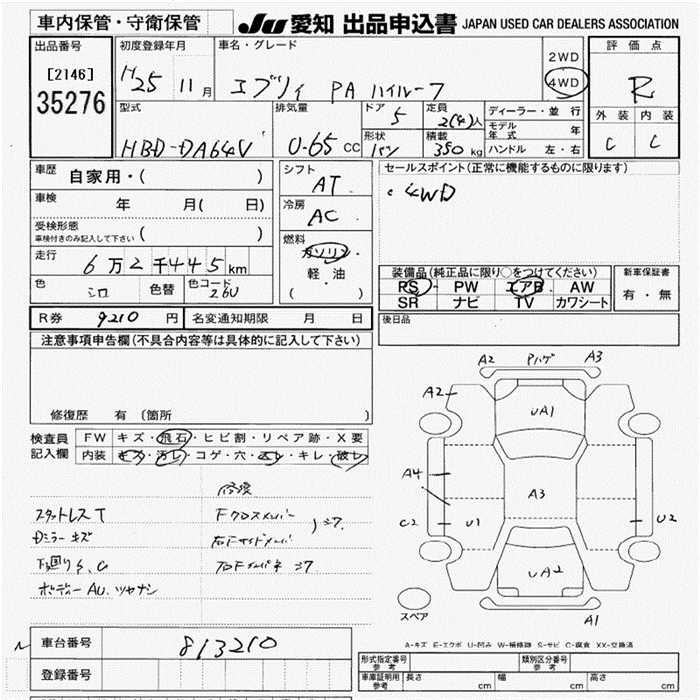 車内保管・守衛保管
JU 愛知 出品申込書 JAPAN USED CAR DEALERS ASSOCIATION
出品番号
[2146]
35276
初度登録年月
H25 11月
車名・グレード
エブリィ PA ハイルーフ
2WD
4WD
評価点
R
外装 内装
C C
型式
HBD-DA64V
排気量
0.65 CC
ドア
5
定員
2(4)人
形状
バン
積載
350 kg
ディーラー・並行
モデル年式 年
ハンドル 左・右
車歴
自家用・( )
車検
年 月( 日)
受検形態
車検付きのみ記入して下さい ( )
走行
6万2千445km
色
シロ
色替
色コード
26U
シフト
AT
冷房
AC
燃料
ガソリン
軽・油
( )
セールスポイント(正常に機能するものに限ります)
4WD
装備品(純正品に限り○をつけてください)
PS・PW・エアB・AW
SR・ナビ・TV・カワシート
新車保証書
有・無
R券 9210 円
名変通知期限 月 日
後日品
注意事項申告欄(不具合内容等は具体的に記入して下さい)
修復歴 有(箇所
検査員記入欄
FW キズ・飛石・ヒビ割・リペア跡・X要
内装 キズ・汚レ・コゲ・穴・スレ・キレ・破レ
スタットレスT
Dミラーキズ
下廻りS.C
ボディーAU.ツヤナシ
修復
Fクロスメンバー
右Fサイドメンバ
A2 Pハゲ A3
A2
UA1
A4
A3
C2
U1
U2
UA2
スペア
A1
A-キズ E-エクボ U-凹み W-補修跡 S-サビ C-腐食 XX-交換済
車台番号 813210
登録番号
形式指定番号 参考
類別区分番号 参考
車庫証明用 参考
長さ cm 幅 cm 高さ cm